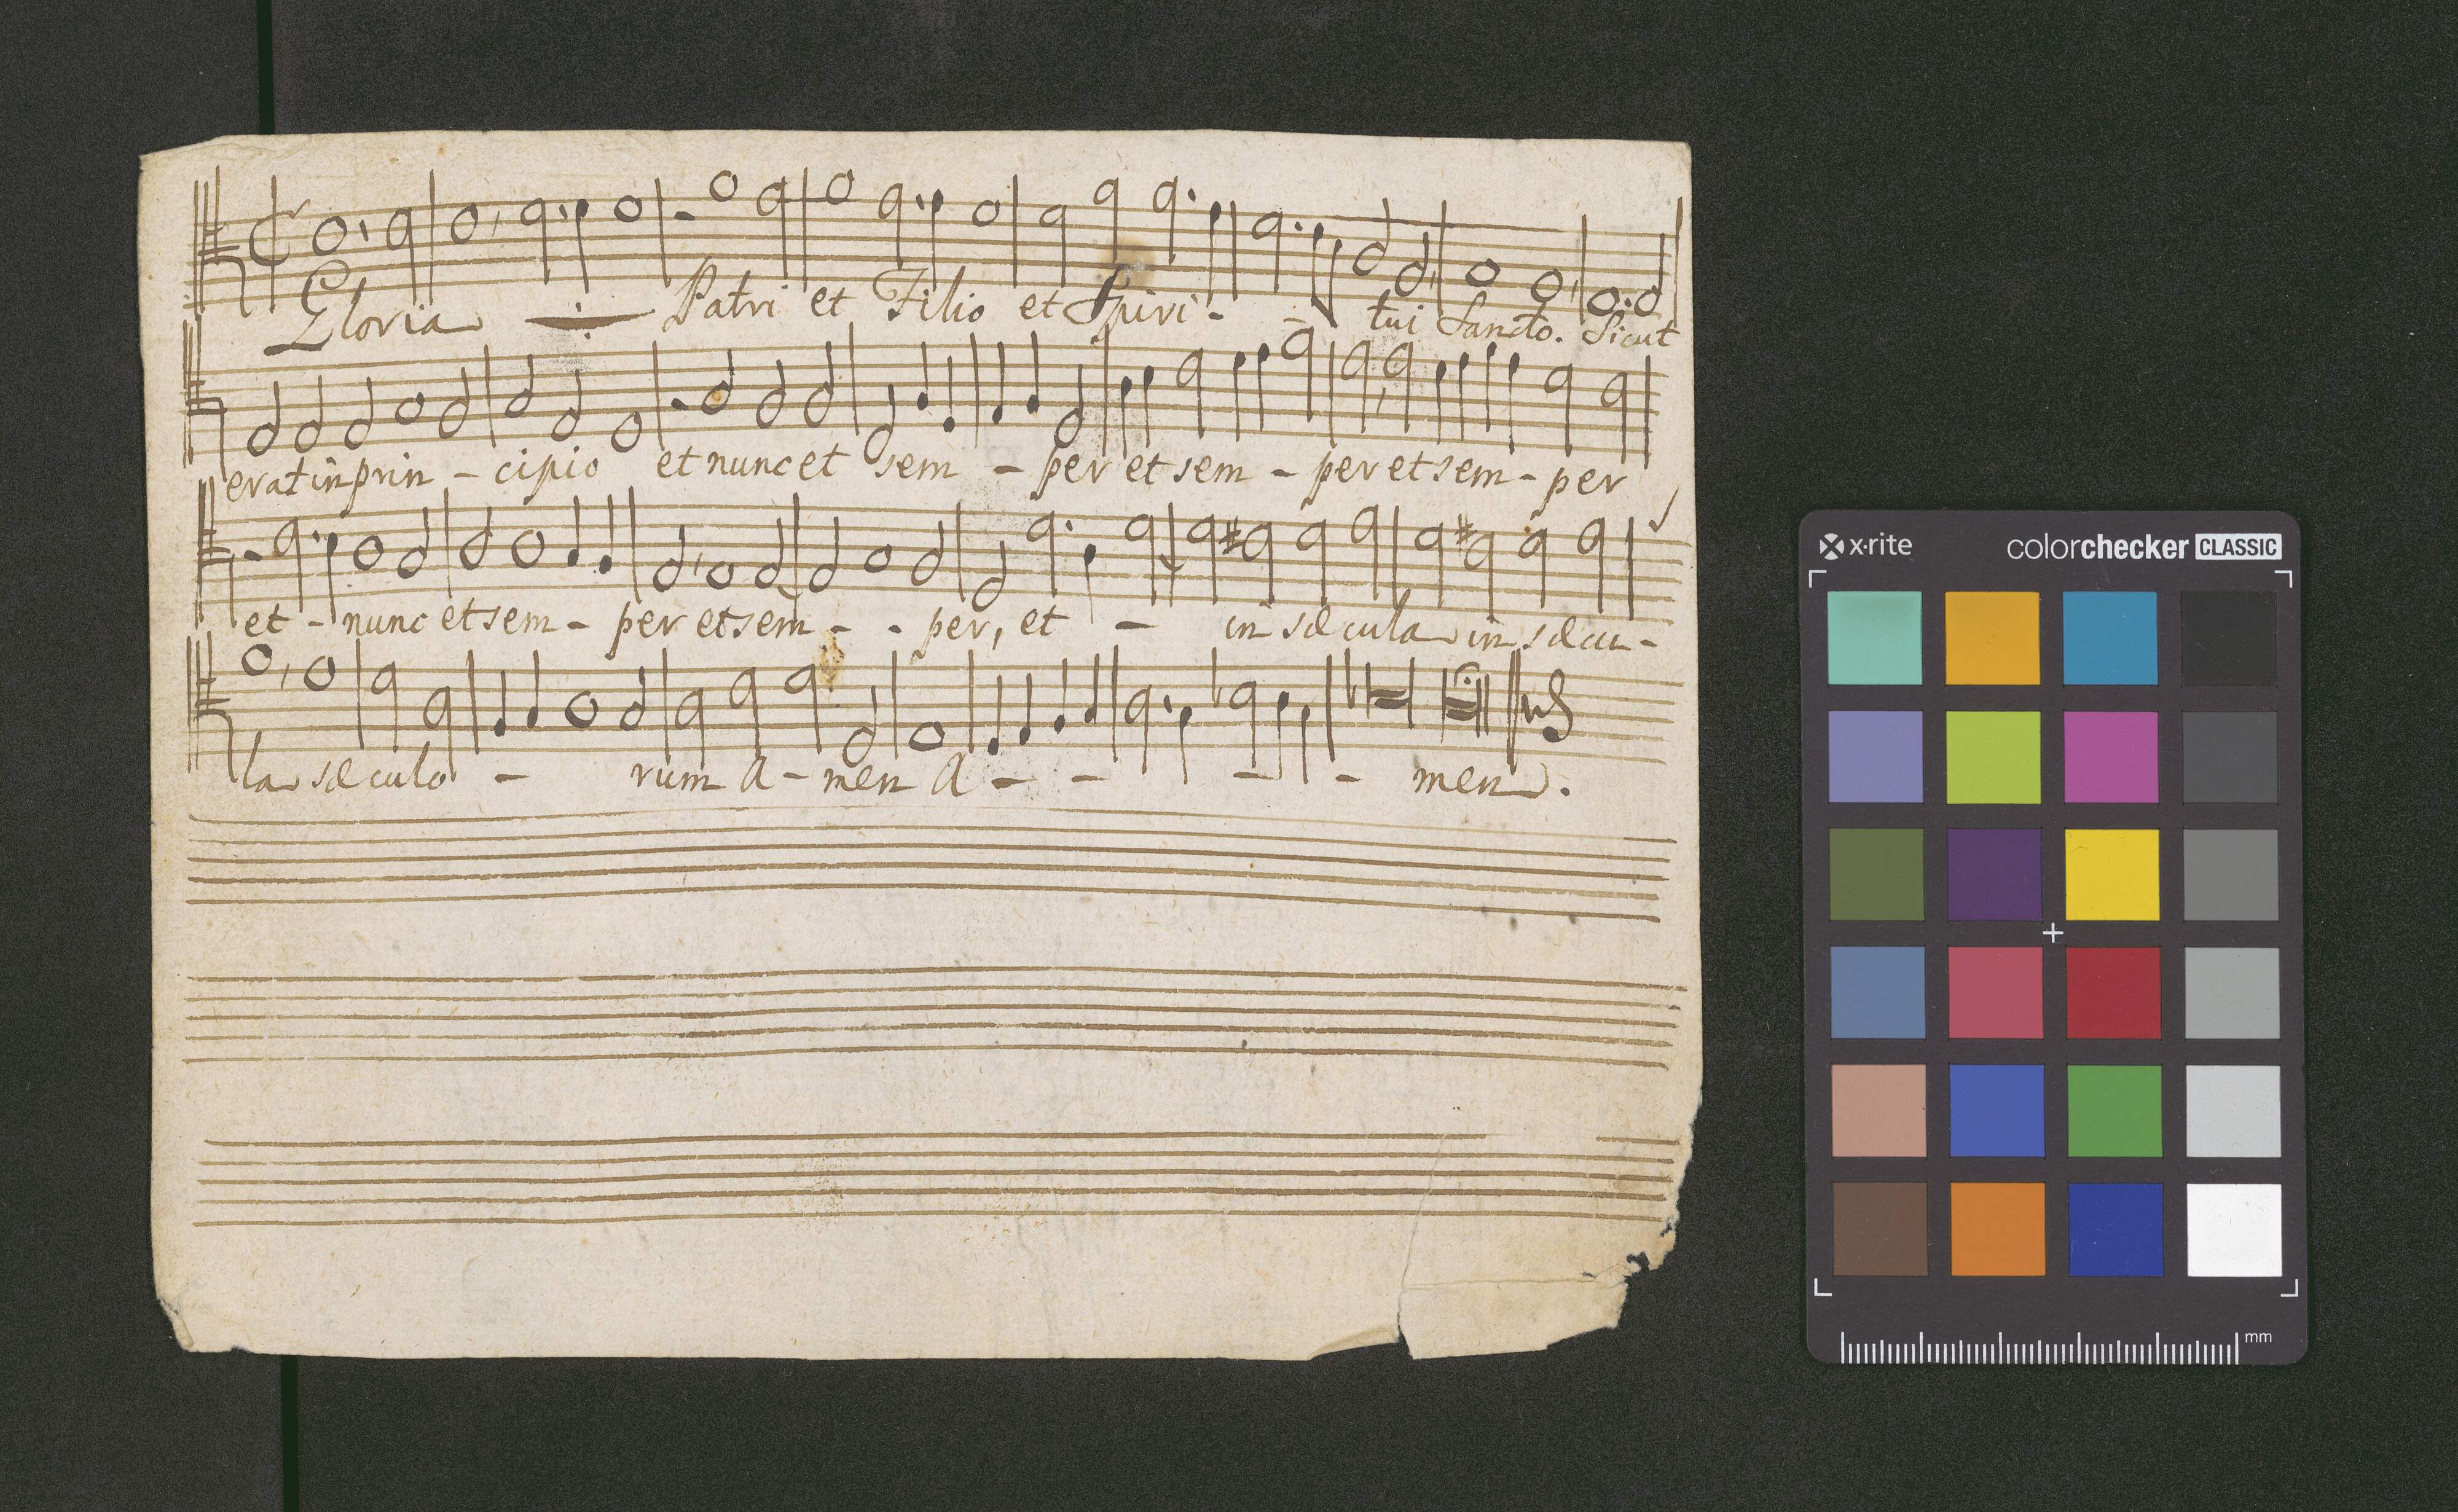 Gloria Patri et Filio et Spiri - - tui Sancto. Sicut
erat in prin - cipio et nunc et sem - per et sem - per et sem - per
et - nunc et sem - per et sem - - per, et - in sæcula in sæcu -
la sæculo - rum A - men A - - - - men.
x·rite colorchecker CLASSIC
mm